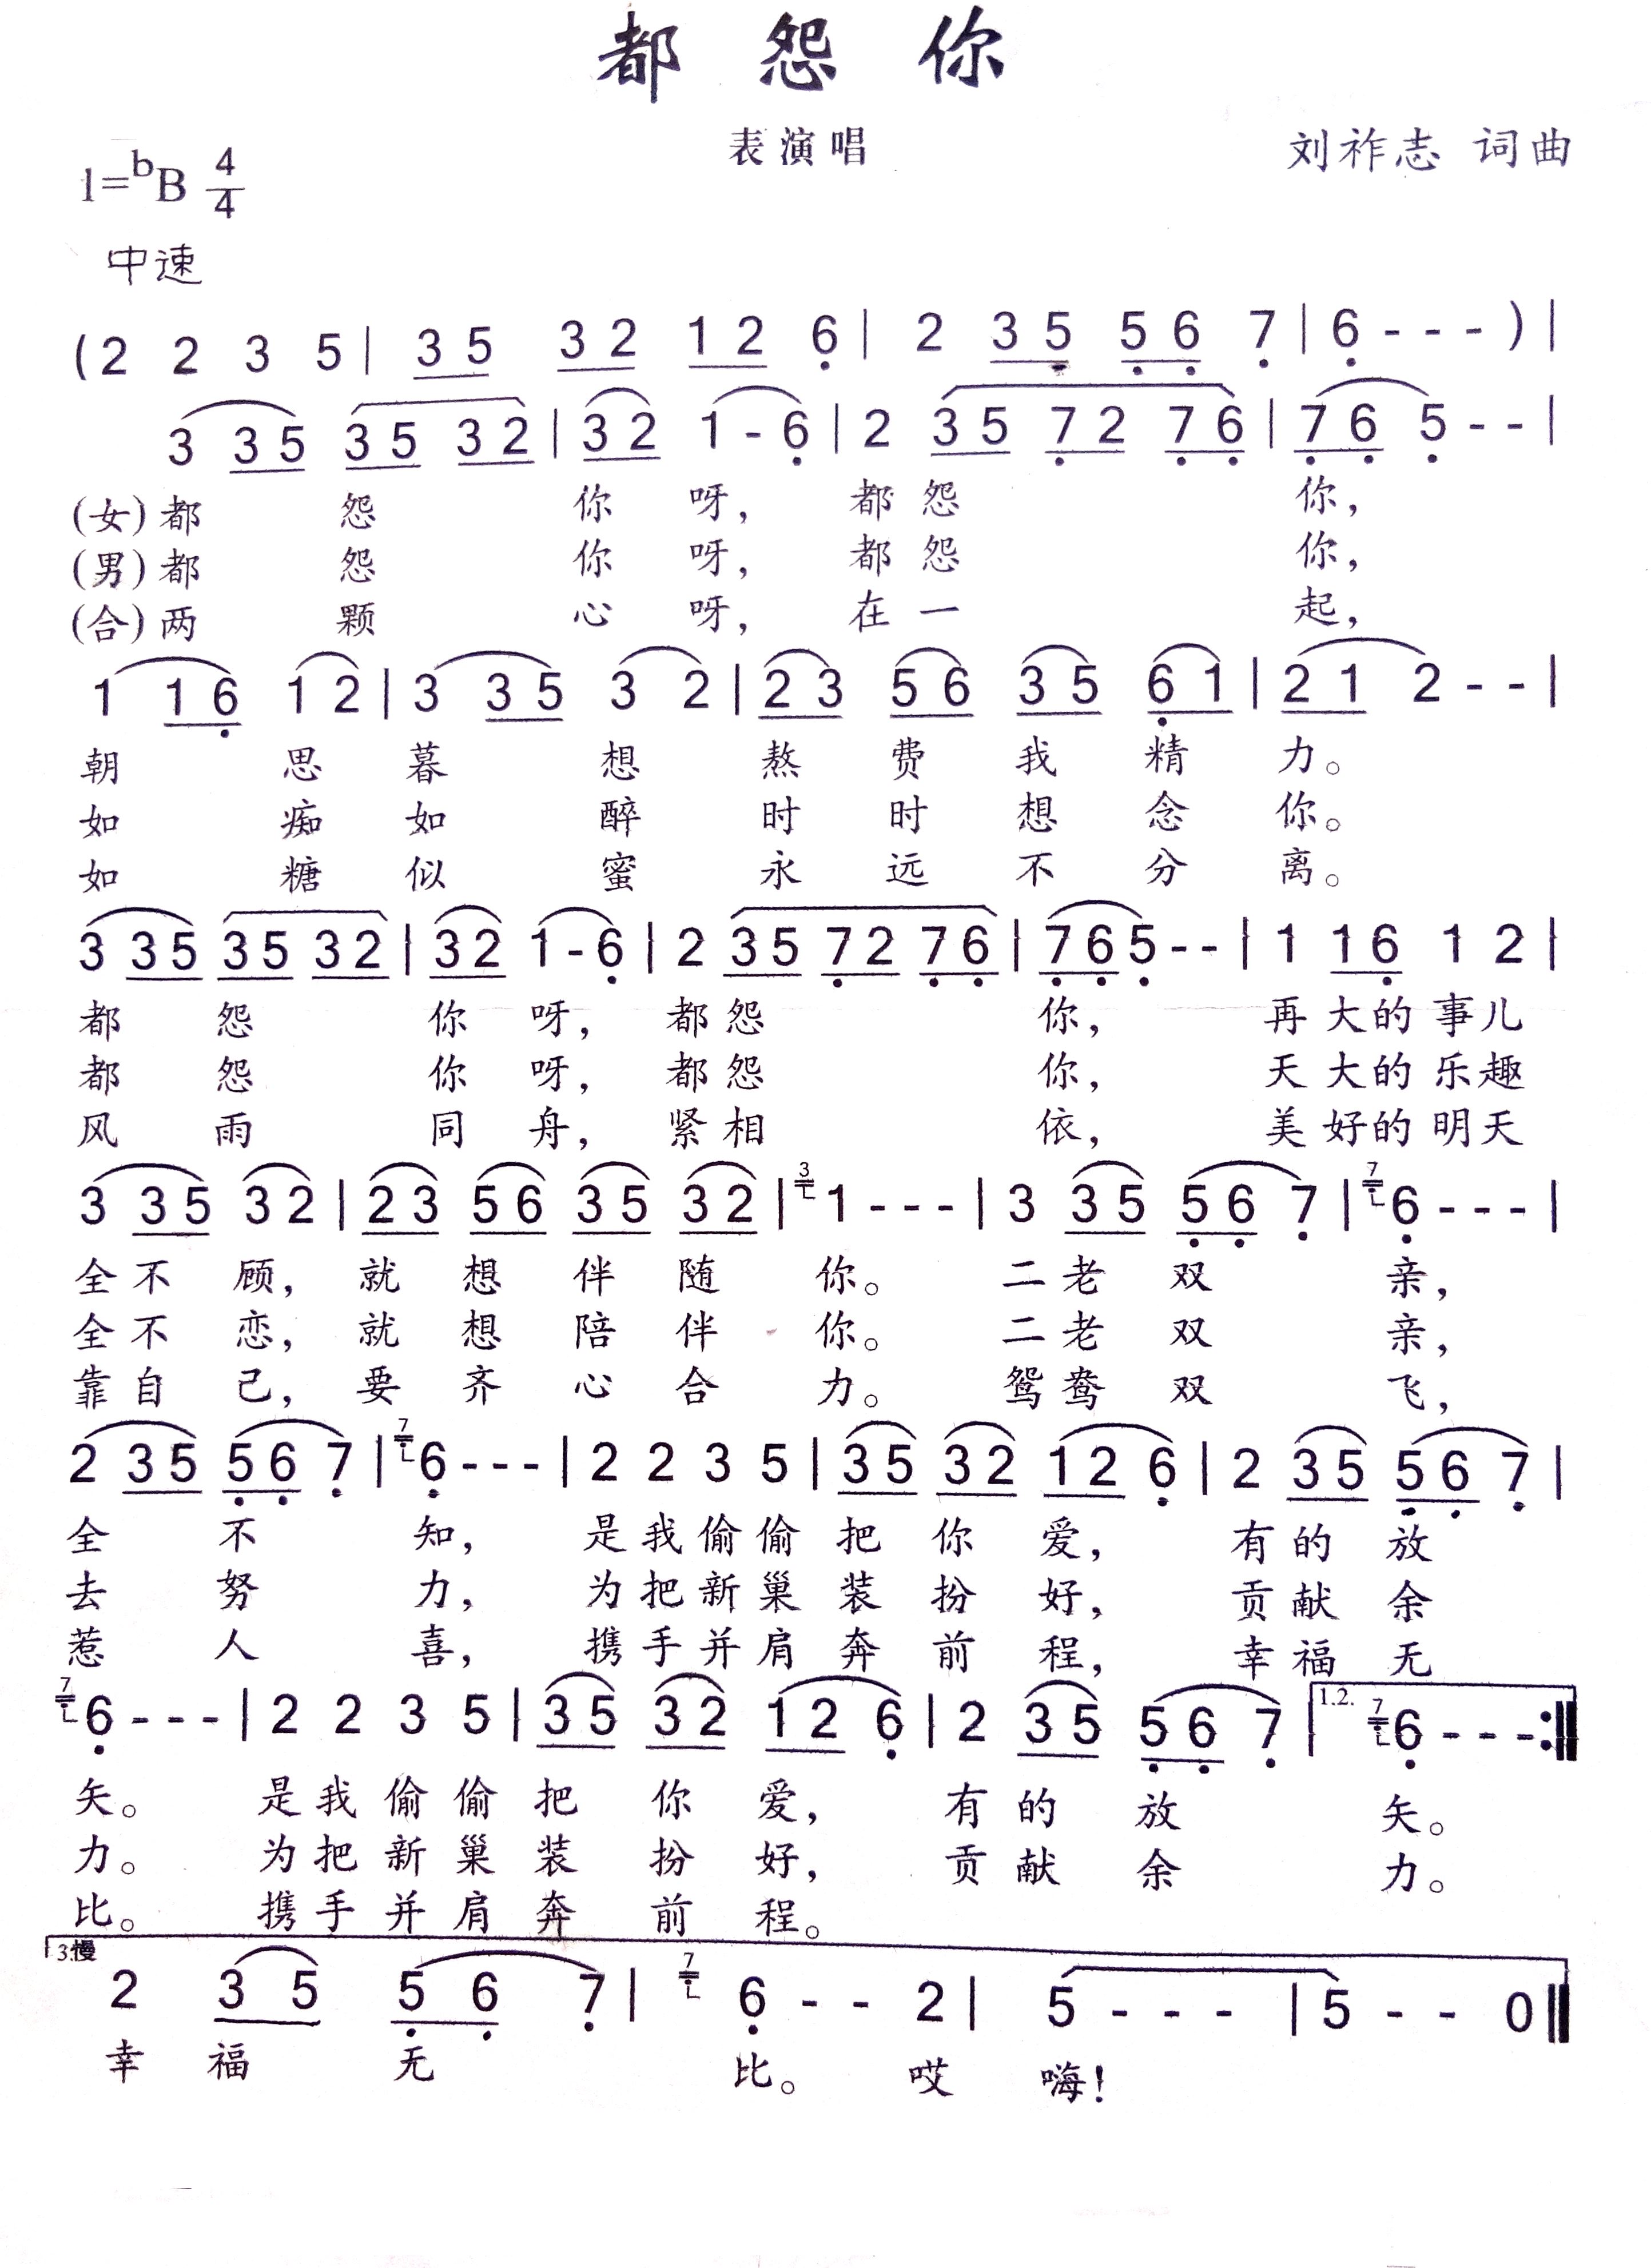 都怨你
表演唱
刘祚志 词曲
1=bB 4/4
中速
(2 2 3 5 | 3 5 3 2 1 2 6 | 2 3 5 5 6 7 | 6 - - - ) |
3 3 5 3 5 3 2 | 3 2 1 - 6 | 2 3 5 7 2 7 6 | 7 6 5 - - |
(女)都 怨 你 呀, 都 怨 你,
(男)都 怨 你 呀, 都 怨 你,
(合)两 颗 心 呀, 在 一 起,
1 1 6 1 2 | 3 3 5 3 2 | 2 3 5 6 3 5 6 1 | 2 1 2 - - |
朝 思 暮 想 熬 费 我 精 力。
如 痴 如 醉 时 时 想 念 你。
如 糖 似 蜜 永 远 不 分 离。
3 3 5 3 5 3 2 | 3 2 1 - 6 | 2 3 5 7 2 7 6 | 7 6 5 - - | 1 1 6 1 2 |
都 怨 你 呀, 都 怨 你, 再 大 的 事 儿
都 怨 你 呀, 都 怨 你, 天 大 的 乐 趣
风 雨 同 舟, 紧 相 依, 美 好 的 明 天
3 3 5 3 2 | 2 3 5 6 3 5 3 2 | 3 1 - - - | 3 3 5 5 6 7 | 7 6 - - - |
全 不 顾, 就 想 伴 随 你。 二 老 双 亲,
全 不 恋, 就 想 陪 伴 你。 二 老 双 亲,
靠 自 己, 要 齐 心 合 力。 鸳 鸯 双 飞,
2 3 5 5 6 7 | 7 6 - - - | 2 2 3 5 | 3 5 3 2 1 2 6 | 2 3 5 5 6 7 |
全 不 知, 是 我 偷 偷 把 你 爱, 有 的 放
去 努 力, 为 把 新 巢 装 扮 好, 贡 献 余
惹 人 喜, 携 手 并 肩 奔 前 程, 幸 福 无
7 6 - - - | 2 2 3 5 | 3 5 3 2 1 2 6 | 2 3 5 5 6 7 | 1.2. 7 6 - - - :||
矢。 是 我 偷 偷 把 你 爱, 有 的 放 矢。
力。 为 把 新 巢 装 扮 好, 贡 献 余 力。
比。 携 手 并 肩 奔 前 程。
3.慢
2 3 5 5 6 7 | 7 6 - - 2 | 5 - - - | 5 - - 0 ||
幸 福 无 比。 哎 嗨!